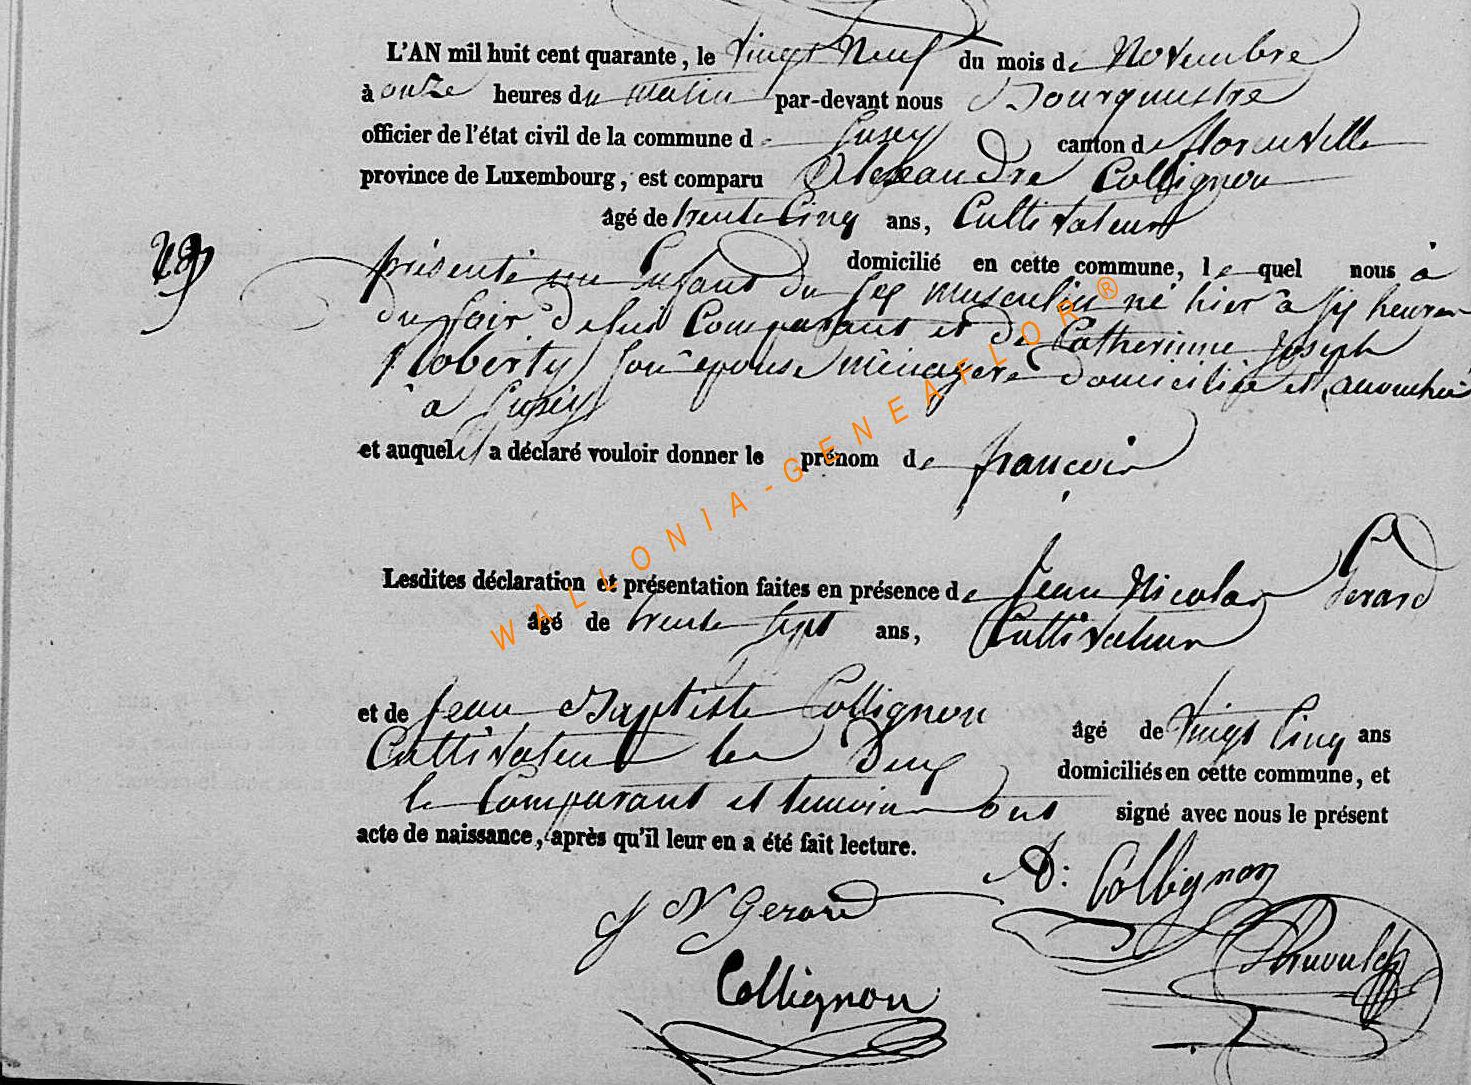 L'AN mil huit cent quarante, le vingt Neuf du mois de Novembre
à onze heures du matin par-devant nous Bourgmestre
officier de l'état civil de la commune de Suxey canton de florenville
province de Luxembourg, est comparu Alexandre Collignon
âgé de trente Cinq ans, Cultivateur
29
domicilié en cette commune, lequel nous à
présenté un Enfant du sex musculin né hier à six heures
du soir de lui Comparant et de Catherinne Joseph
Noberty son épouse ménagère domiciliée et accouchée
à Suxey
et auquel il a déclaré vouloir donner le prénom de françois
Lesdites déclaration et présentation faites en présence de Jean Nicolas Gerard
âgé de trente sept ans, Cultivateur
et de Jean Baptiste Collignon âgé de vingt Cinq ans
Cultivateur les Deux domiciliés en cette commune, et
le Comparant et temoins ont signé avec nous le présent
acte de naissance, après qu'il leur en a été fait lecture.
A: Collignon
J N Gerard
Collignon
WALLONIA-GENEAFLOR®